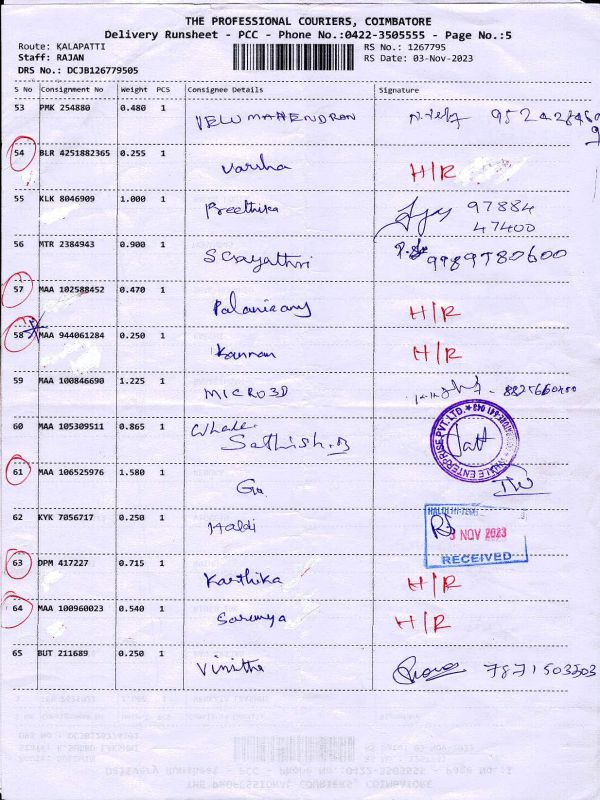 THE PROFESSIONAL COURIERS, COIMBATORE
Delivery Runsheet - PCC - Phone No.:0422-3505555 - Page No.:5
Route: KALAPATTI RS No.: 1267795
Staff: RAJAN RS Date: 03-Nov-2023
DRS No.: DCJB126779505
S No Consignment No Weight PCS Consignee Details Signature
53 PMK 254880 0.480 1 VELU MAHENDRAN
54 BLR 4251882365 0.255 1 Varsha H/R
55 KLK 8046909 1.000 1 Preethika 97884
47400
56 MTR 2384943 0.900 1 S Gayathri 9789780600
57 MAA 102588452 0.470 1 H/R
58 MAA 944061284 0.250 1 Kannan H/R
59 MAA 100846690 1.225 1 MICRO3D
60 MAA 105309511 0.865 1 Whale
Sathish.B
61 MAA 106525976 1.580 1
62 KYK 7056717 0.250 1 Haldi
3 NOV 2023
RECEIVED
63 DPM 417227 0.715 1 Karthika H/R
64 MAA 100960023 0.540 1 Saranya H/R
65 BUT 211689 0.250 1 Vinitha 7871503503